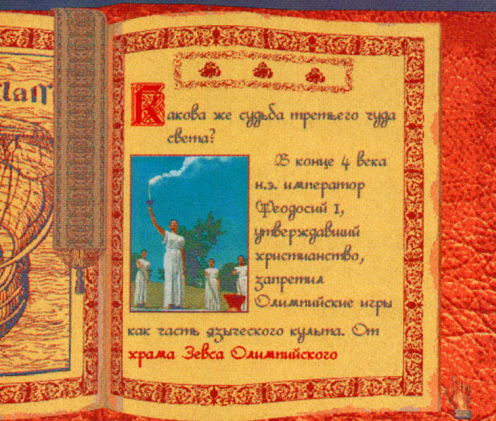 Какова же судьба третьего чуда
света?
В конце 4 века
н.э. император
Феодосий I,
утверждавший
христианство,
запретил
Олимпийские игры
как часть языческого культа. От
храма Зевса Олимпийского